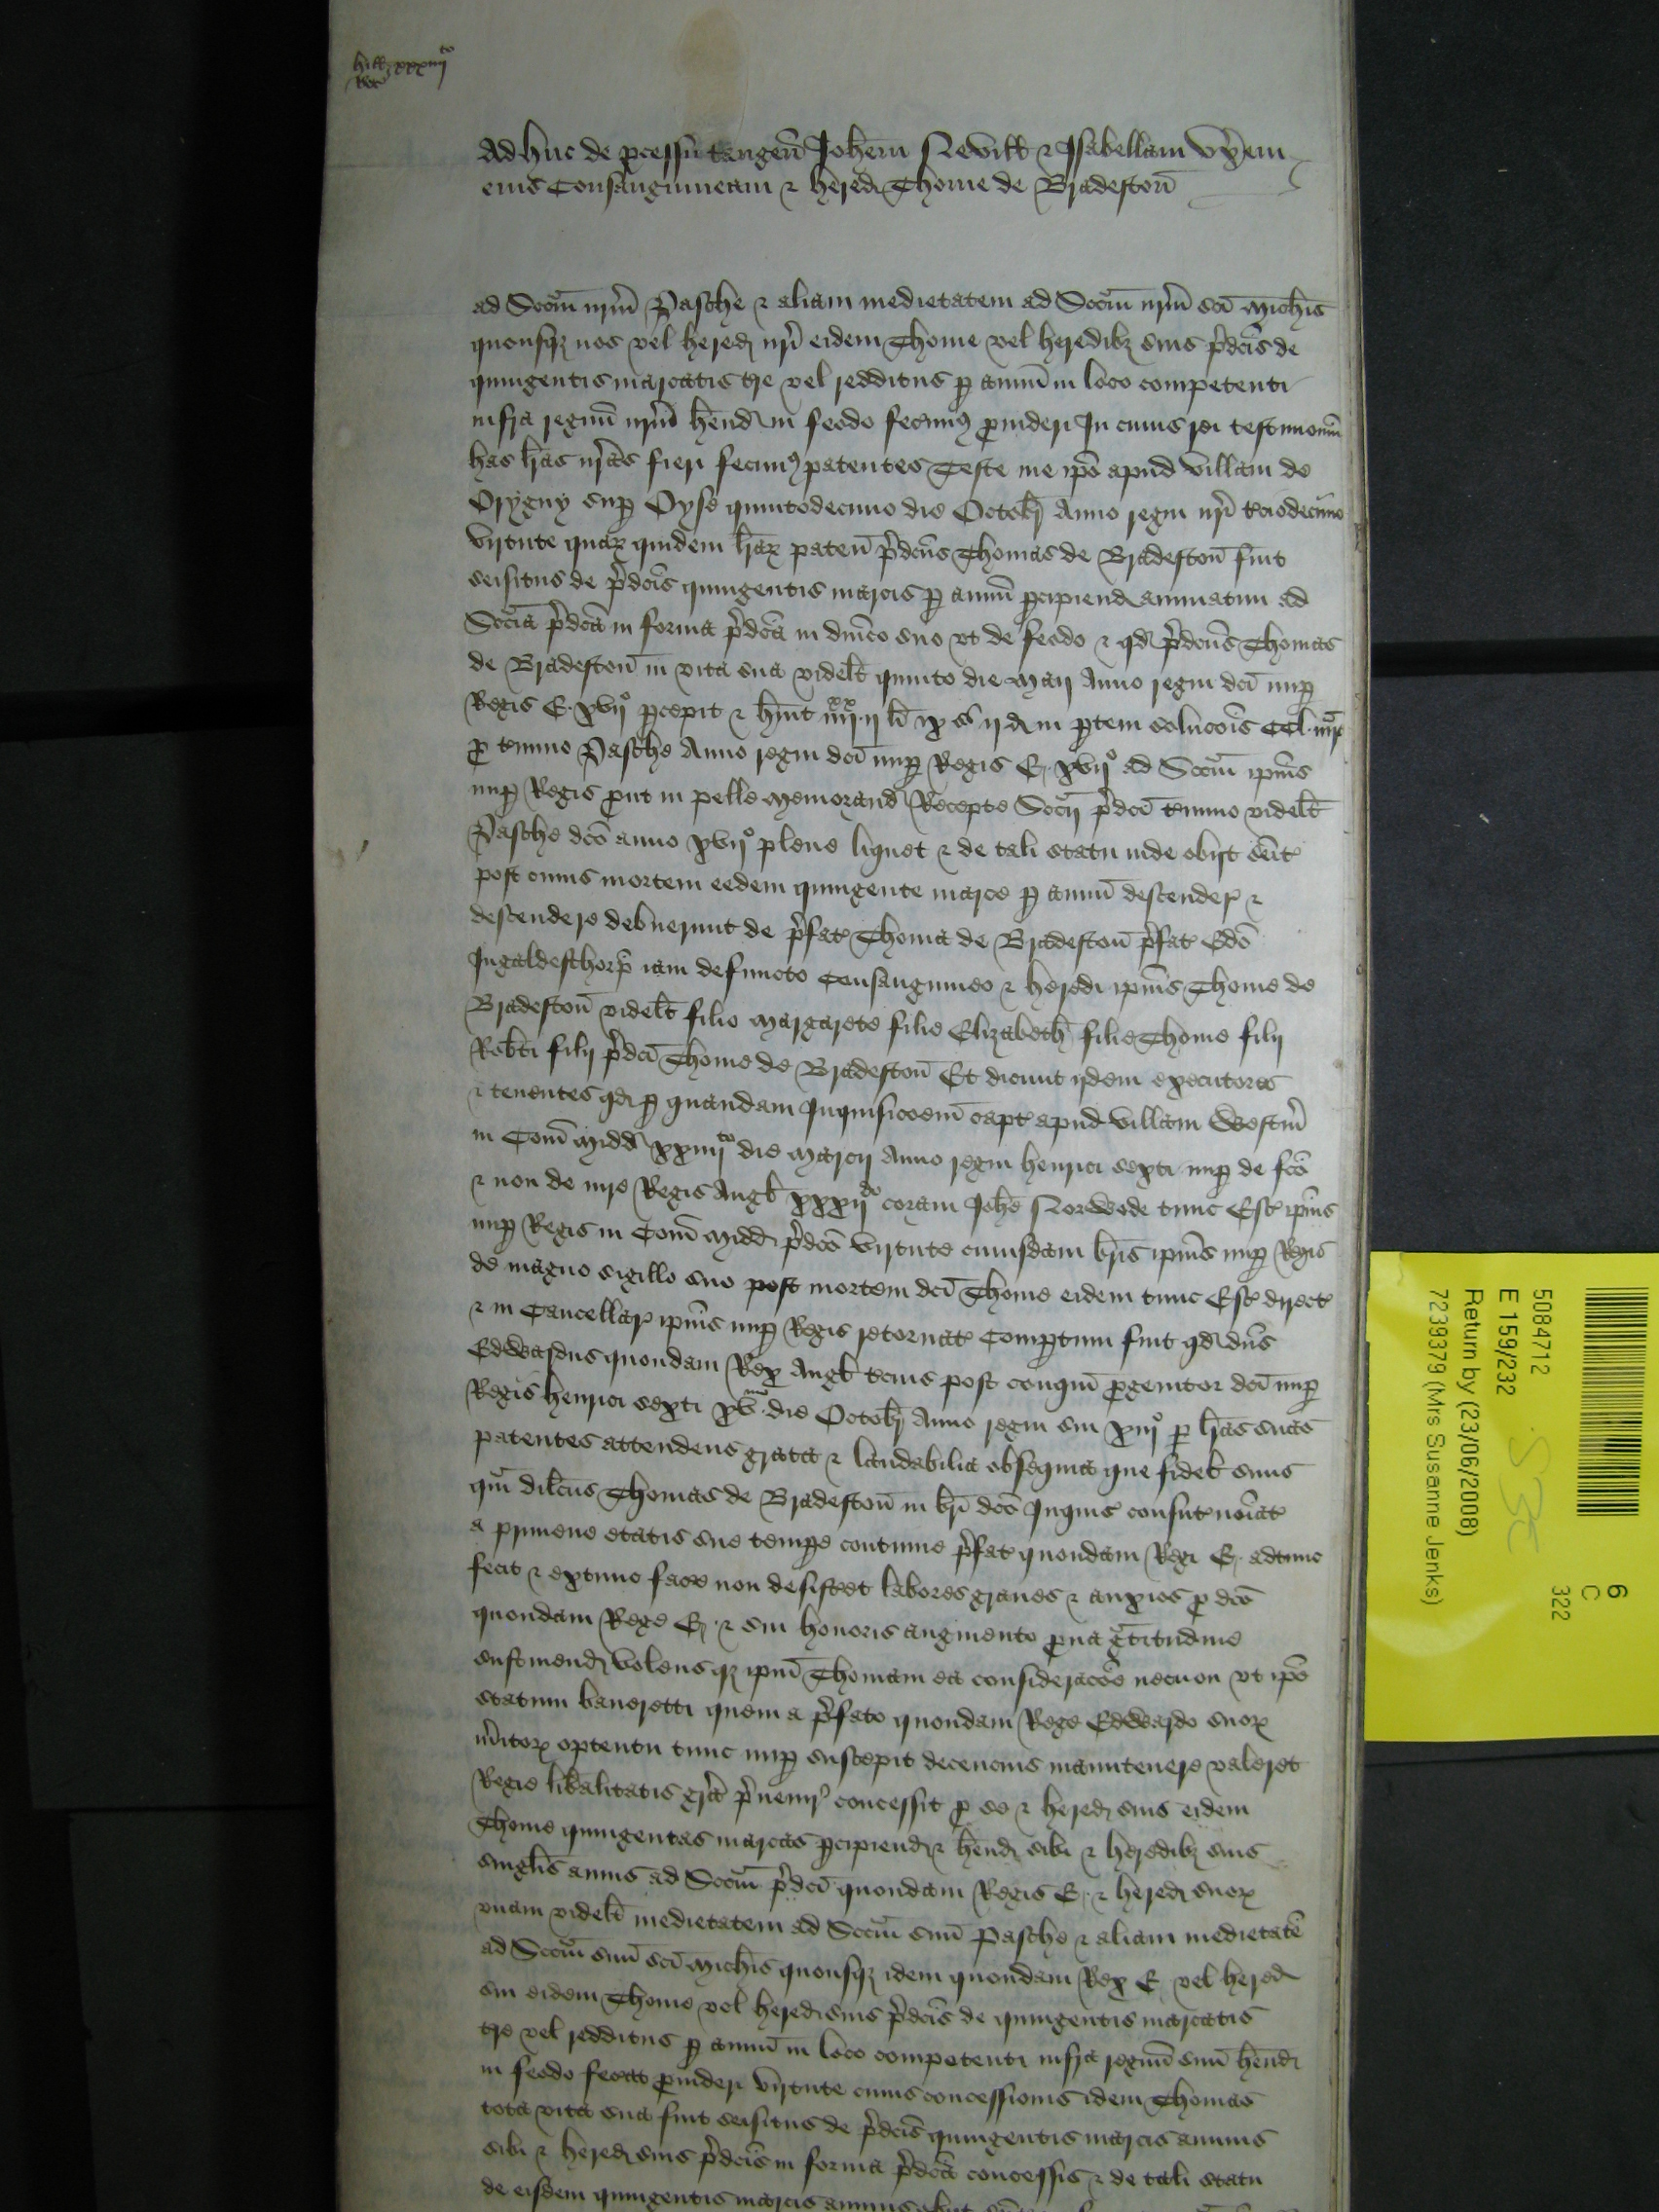 hill xxxiiij to
Ro
Adhuc de p̱cessu tangeñ Joh̄em Nevill ⁊ Isabellam vx̄em
eius Consanguineam ⁊ hered Thome de Bradestoñ
ad Sccm̄ nrm̄ Pasche ⁊ aliam medietatem ad Sccm̄ nrm̄ sc̄i Mich̄is
quousqꝫ nos vel hered nr̄i eidem Thome vel heredibꝫ suis p̄dc̄is de
quingentis marcatis tr̄e vel redditus ꝑ annū in loco competenti
infra regnū nrm̄ h̄end in feodo fecimꝰ ꝓuideri In cuius rei testimoniū
has l̄ras nr̄as fieri fecimꝰ patentes Teste me ip̄o apud villam de
Orygny suꝑ Oyse quintodecimo die Octobr̄ Anno regni nr̄i t̄ciodecimo
virtute quaꝝ quidem l̄raꝝ pateñ p̄dc̄us Thomas de Bradestoñ fuit
seisitus de p̄dc̄is quingentis marcis ꝑ annū ꝑcipiend annuatim ad
Scc̄ia p̄dc̄a in forma p̄dc̄a in dn̄ico suo vt de feodo ⁊ qd p̄dc̄us Thomas
de Bradestoñ in vita sua videlt̄ quinto die Maij Anno regni dc̄i nuꝑ
Regis E. xvijº ꝑcepit ⁊ h̄uit iiij xx ij li ix s ij d in ꝑtem soluc̄ois CCl mr̄
ꝓ t̄mino Pasche Anno regni dc̄i nuꝑ Regis E. xvijº ad Sccm̄ ip̄ius
nuꝑ Regis ꝓut in pelle Memorand Recepte Sccij p̄dc̄i t̄mino videlt̄
Pasche dc̄o anno xvijº plene liquet ⁊ de tali statu inde obijt seit
post cuius mortem eedem quingente marce ꝑ annū descender ⁊
descendere debuerunt de p̄fat Thoma de Bradestoñ p̄fat Edō
Ingaldesthorp̄ iam defuncto Consanguineo ⁊ heredi ip̄ius Thome de
Bradestoñ videlt̄ filio Margarete filie Elizabeth filie Thome filij
Robt̄i filij p̄dc̄i Thome de Bradestoñ Et dicunt ijdem executores
⁊ tenentes qd ꝑ quandam Inquisic̄oem capt apud villam Westm̄
in Com̄ Midd xxiiij to die Marcij Anno regni Henrici sexti nuꝑ de fc̄o
⁊ non de iure Regis Angl xxxij do coram Joh̄e Norwode tunc Esc ip̄ius
nuꝑ Regis in Com̄ Midd p̄dc̄o virtute cuiusdam br̄is ip̄ius nuꝑ Regis
de magno sigillo suo post mortem dc̄i Thome eidem tunc Esc direct
⁊ in Cancellar ip̄ius nuꝑ Regis retornat Comꝑtum fuit qd dn̄s
Edwardus quondam Rex Angl t̄cius post conqm̄ ꝓgenitor dc̄i nuꝑ
Regis Henrici sexti xv mo die Octobr̄ Anno regni sui xiijº ꝑ l̄ras suas
patentes attendens grata ⁊ laudabilia obsequia que fidel suus
qm̄ dilc̄us Thomas de Bradestoñ in br̄i dc̄o Inquis consut noīat
a primeuo etatis sue tempe continue p̄fat quondam Regi E. adtunc
fecit ⁊ extunc face non desistet labores graues ⁊ anxios ꝓ dc̄o
quondam Rege E. ⁊ sui honoris augmento ꝓna gratitudine
sustinend volensqꝫ ip̄m Thomam ea considerac̄oe necnon vt ip̄e
statum baneretti quem a p̄fato quondam Rege Edwardo suoꝝ
m̄itoꝝ optentu tunc nuꝑ suscepit decencius manutenere valeret
Regie lib̄alitatis gr̄a p̄uenirꝰ concessit ꝓ se ⁊ hered suis eidem
Thome quingentas marcas ꝑcipiend ⁊ h̄end sibi ⁊ heredibꝫ suis
singlis annis ad Sccm̄ p̄dc̄i quondam Regis E. ⁊ hered suoꝝ
vnam videlt̄ medietatem ad Sccm̄ suū Pasche ⁊ aliam medietatē
ad Sccm̄ suū sc̄i Mich̄is quousqꝫ idem quondam Rex E. vel hered
sui eidem Thome vel hered suis p̄dc̄is de quingentis marcatis
tr̄e vel redditus ꝑ annū in loco competenti infra regnū suū h̄end
in feodo fecit ꝓuideri virtute cuius concessionis idem Thomas
tota vita sua fuit seisitus de p̄dc̄is quingentis marcis annuis
sibi ⁊ hered suis p̄dc̄is in forma p̄dc̄a concessis ⁊ de tali statu
de eisdem quingentis marcis annuis obijt
6
C
322
5084712
E 159/232
Return by (23/06/2008)
7239379 (Mrs Susanne Jenks)